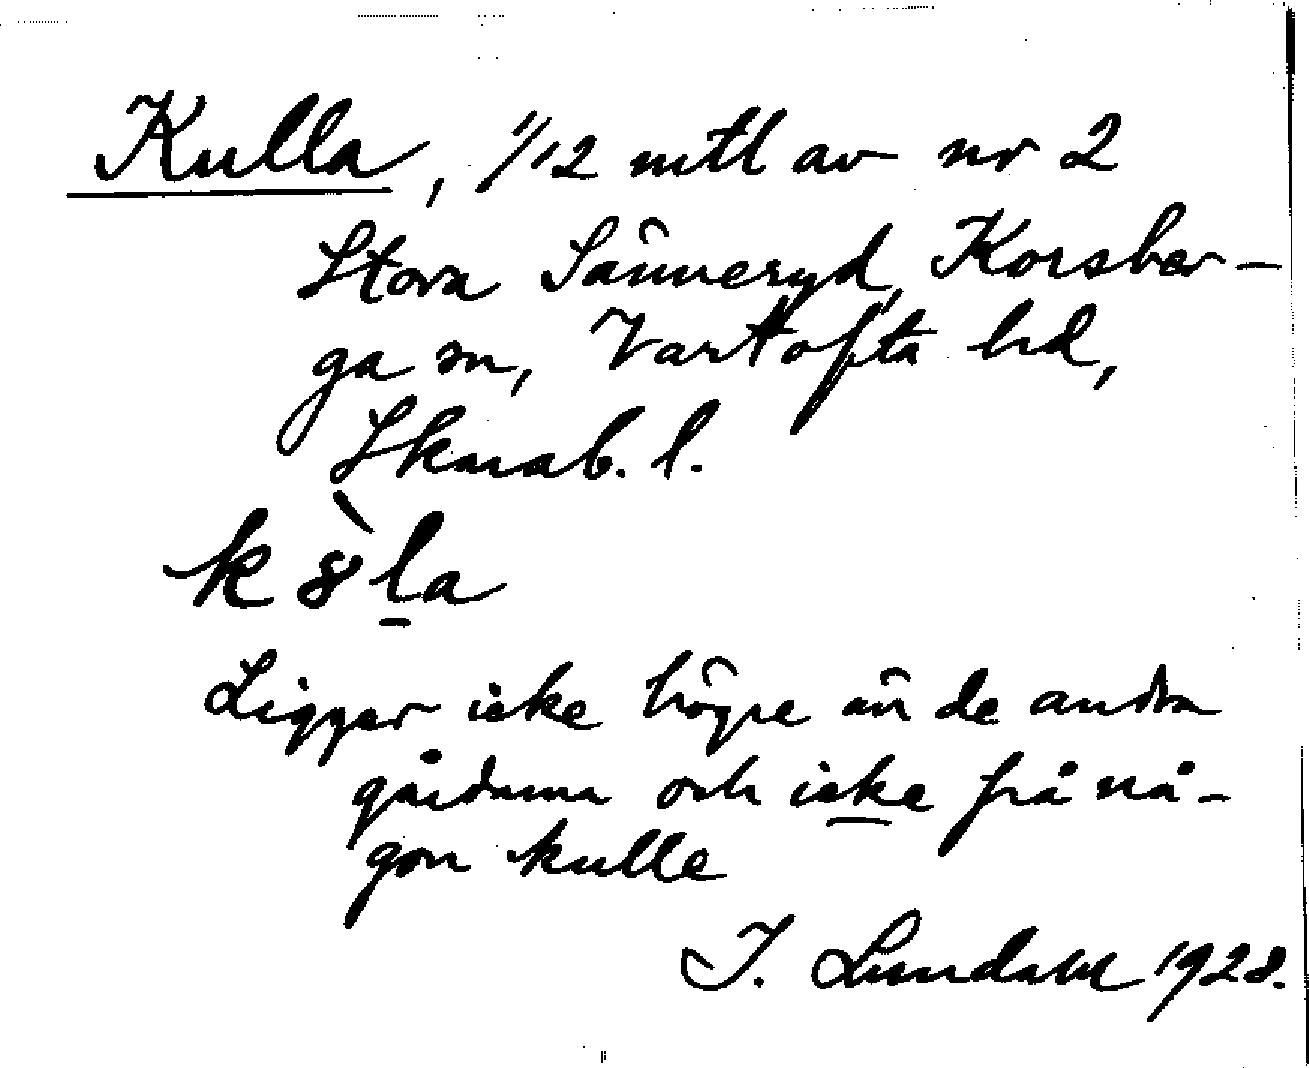 Kulla, 1/12 mtl av nr 2
Stora Sänneryd, Korsber-
ga sn, Vartofta hd,
Skarab. l.
k ȣ̀ l̲a
Ligger icke högre än de andra
gårdarna och icke på nå-
gon kulle
I. Lundahl 1928.